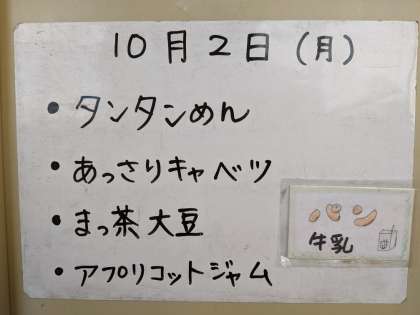 10月2日(月)
• タンタンめん
• あっさりキャベツ
• まっ茶大豆
• アプリコットジャム
パン
牛乳